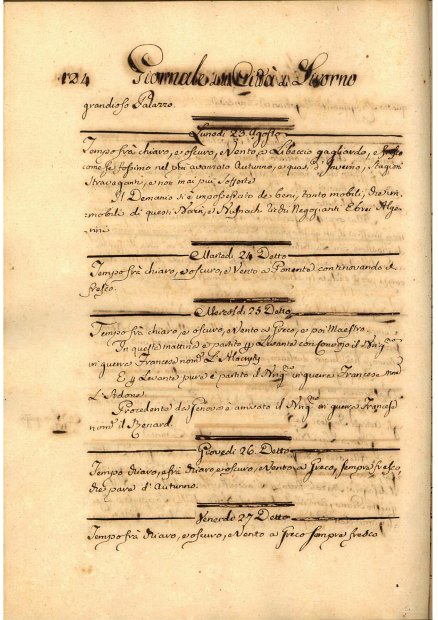 124 Giornale Città di Livorno
grandioso Palazzo.
Lunedì 23 Agosto
Tempo frà chiaro, e oscuro, e Vento a Libeccio gagliardo, e fresco
come se fossimo nel più avanzato Autunno, e quasi d'Inverno, Stagioni
Stravaganti, e non mai più sofferte
Il Demanio si è impossessato de beni, tanto mobili, che im,
mobili di questi Bacri, e Negozianti Ebrei Alge,
rini
Martedì 24 Detto
Tempo frà chiaro, e oscuro, e Vento a Ponente continovando il
fresco.
Mercoldì 25 Detto
Tempo frà chiaro, e oscuro, e Vento a Greco, e poi Maestro.
In questa mattina è partito p Levante con Convojo il
in guerra Francese nom.º
E p Levante pure è partito il in guerra Francese
L'Adone
Procedente da Genova è arrivato il in guerra Francese
nom.º il Renard.
Giovedì 26 Detto
Tempo chiaro, e frà chiaro e oscuro, e Vento a Greco, sempre fresco,
che pare d'Autunno.
Venerdì 27 Detto
Tempo frà chiaro, e oscuro, e Vento a Greco sempre fresco